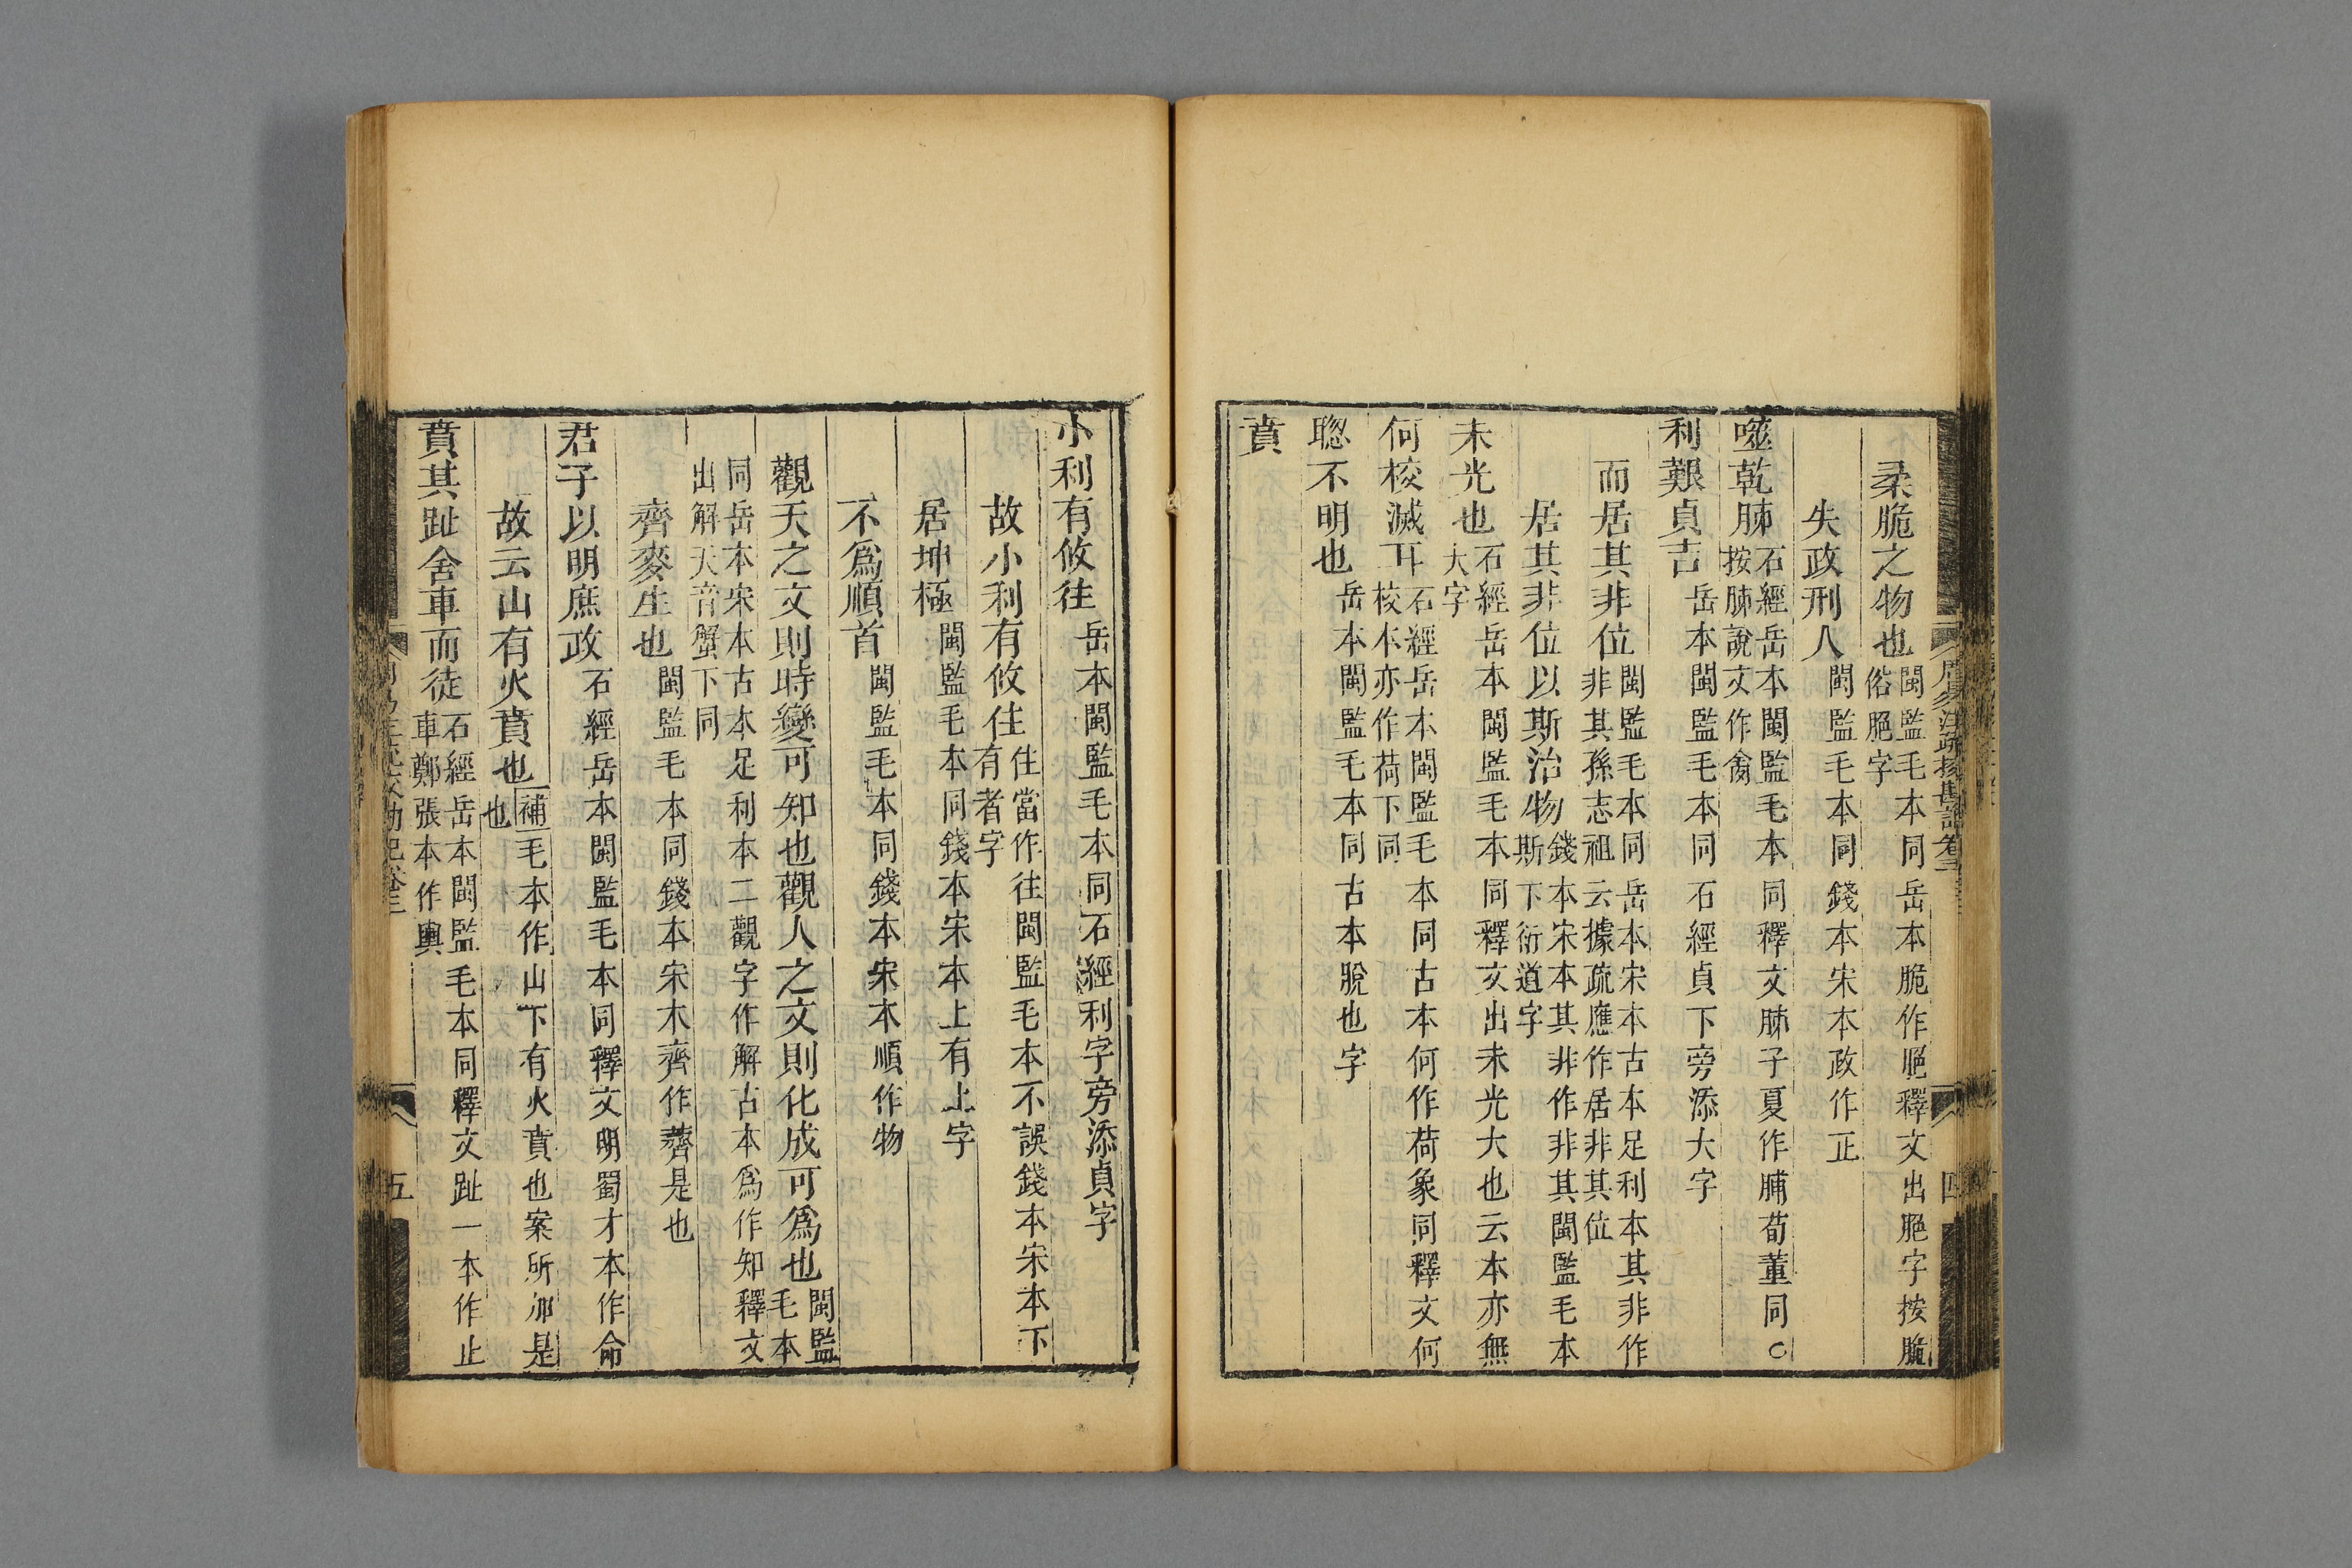 周易注疏挍勘記卷三
四
柔脆之物也閩監毛本同岳本脆作脃釋文出脃字按脆俗脃字
失政刑人閩監毛本同錢本宋本政作正
噬乾胏石經岳本閩監毛本同釋文胏子夏作脯荀董同○按胏說文作𦙙
利艱貞吉岳本閩監毛本同石經貞下旁添大字
而居其非位閩監毛本同岳本宋本古本足利本其非作非其孫志祖云據疏應作居非其位
居其非位以斯治物錢本宋本其非作非其閩監毛本斯下衍道字
未光也石經岳本閩監毛本同釋文出未光大也云本亦無大字
何校滅耳石經岳本閩監毛本同古本何作荷象同釋文何校本亦作荷下同
聰不明也岳本閩監毛本同古本脫也字
賁
小利有攸往岳本閩監毛本同石經利字旁添貞字
故小利有攸住住當作往閩監毛本不誤錢本宋本下有者字
居坤極閩監毛本同錢本宋本上有上字
不爲順首閩監毛本同錢本宋本順作物
觀天之文則時變可知也觀人之文則化成可爲也閩監毛本
同岳本宋本古本足利本二觀字作解古本爲作知釋文出解天音蟹下同
齊麥生也閩監毛本同錢本宋木齊作薺是也
君子以明庶政石經岳本閩監毛本同釋文明蜀才本作命
故云山有火賁也補毛本作山下有火賁也案所加是也
賁其趾舍車而徒石經岳本閩監毛本同釋文趾一本作止車鄭張本作輿
五